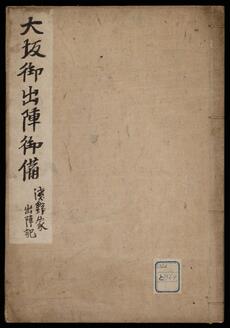 大坂御出陣御備
浅野家
出陣記